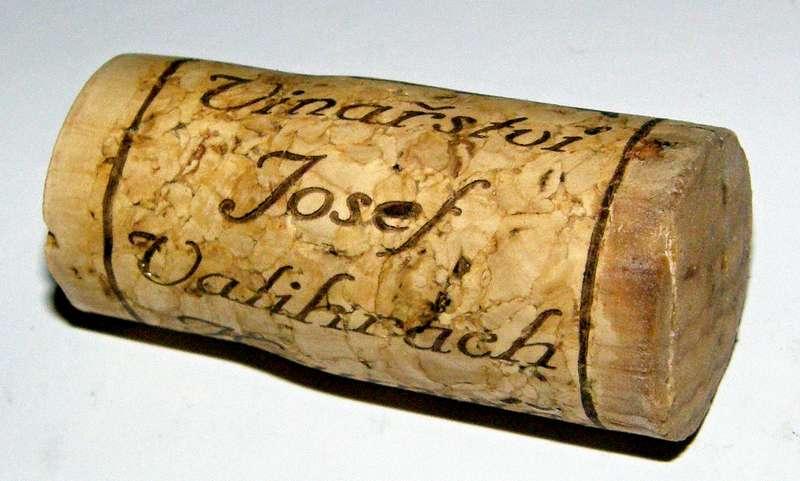 Vinařství
Josef
Valihrach